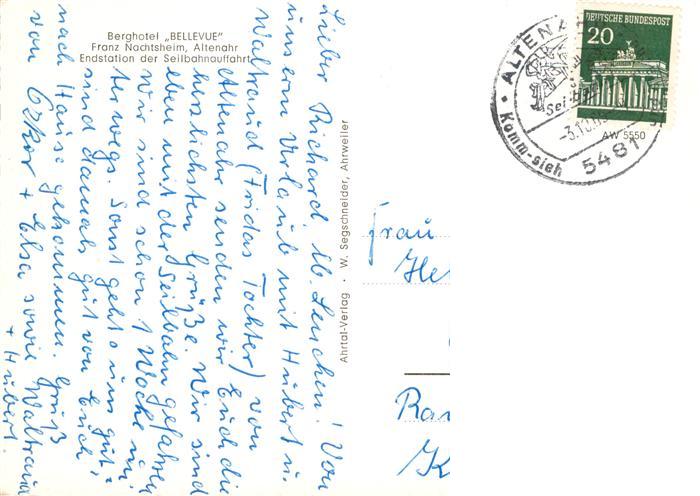 Berghotel „BELLEVUE"
Franz Nachtsheim, Altenahr
Endstation der Seilbahnauffahrt
Lieber Richard lb. Lenchen! Von
unserm Urlaub mit Hubert u.
Waltraud (Fridas Tochter) von
Altenahr senden wir Euch die
herzlichsten Grüße. Wir sind
eben mit der Seilbahn gefahren
Wir sind schon 1 Woche un-
terwegs. Sonst geht's uns gut.
sind damals gut von Euch
nach Hause gekommen. Gruß
von + Elsa sowie Waltraud
+ Hubert.
Ahrtal-Verlag · W. Segschneider, Ahrweiler
DEUTSCHE BUNDESPOST
20
AW 5550
ALTENA
Sei
-3.10.
5481
Komm-sieh
Frau
He
Ra
K